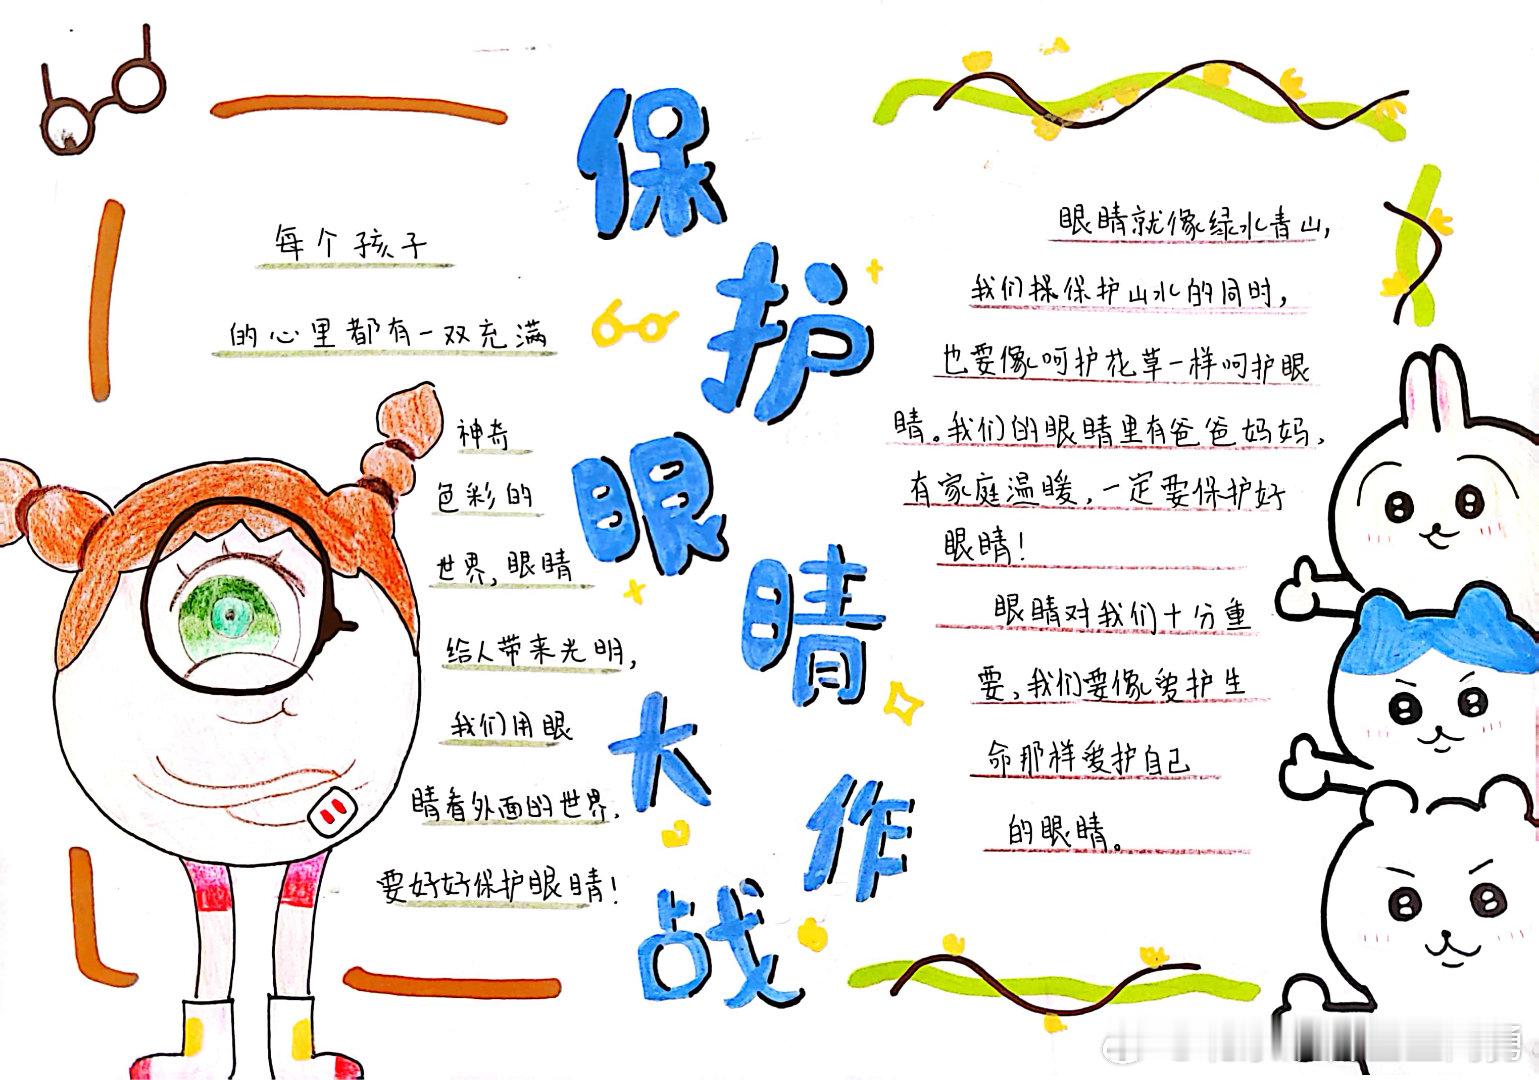 保护眼睛大作战
每个孩子
的心里都有一双充满
神奇
色彩的
世界,眼睛
给人带来光明,
我们用眼
睛看外面的世界.
要好好保护眼睛!
眼睛就像绿水青山,
我们探保护山水的同时,
也要像呵护花草一样呵护眼
睛。我们的眼睛里有爸爸妈妈,
有家庭温暖,一定要保护好
眼睛!
眼睛对我们十分重
要,我们要像爱护生
命那样爱护自己
的眼睛。